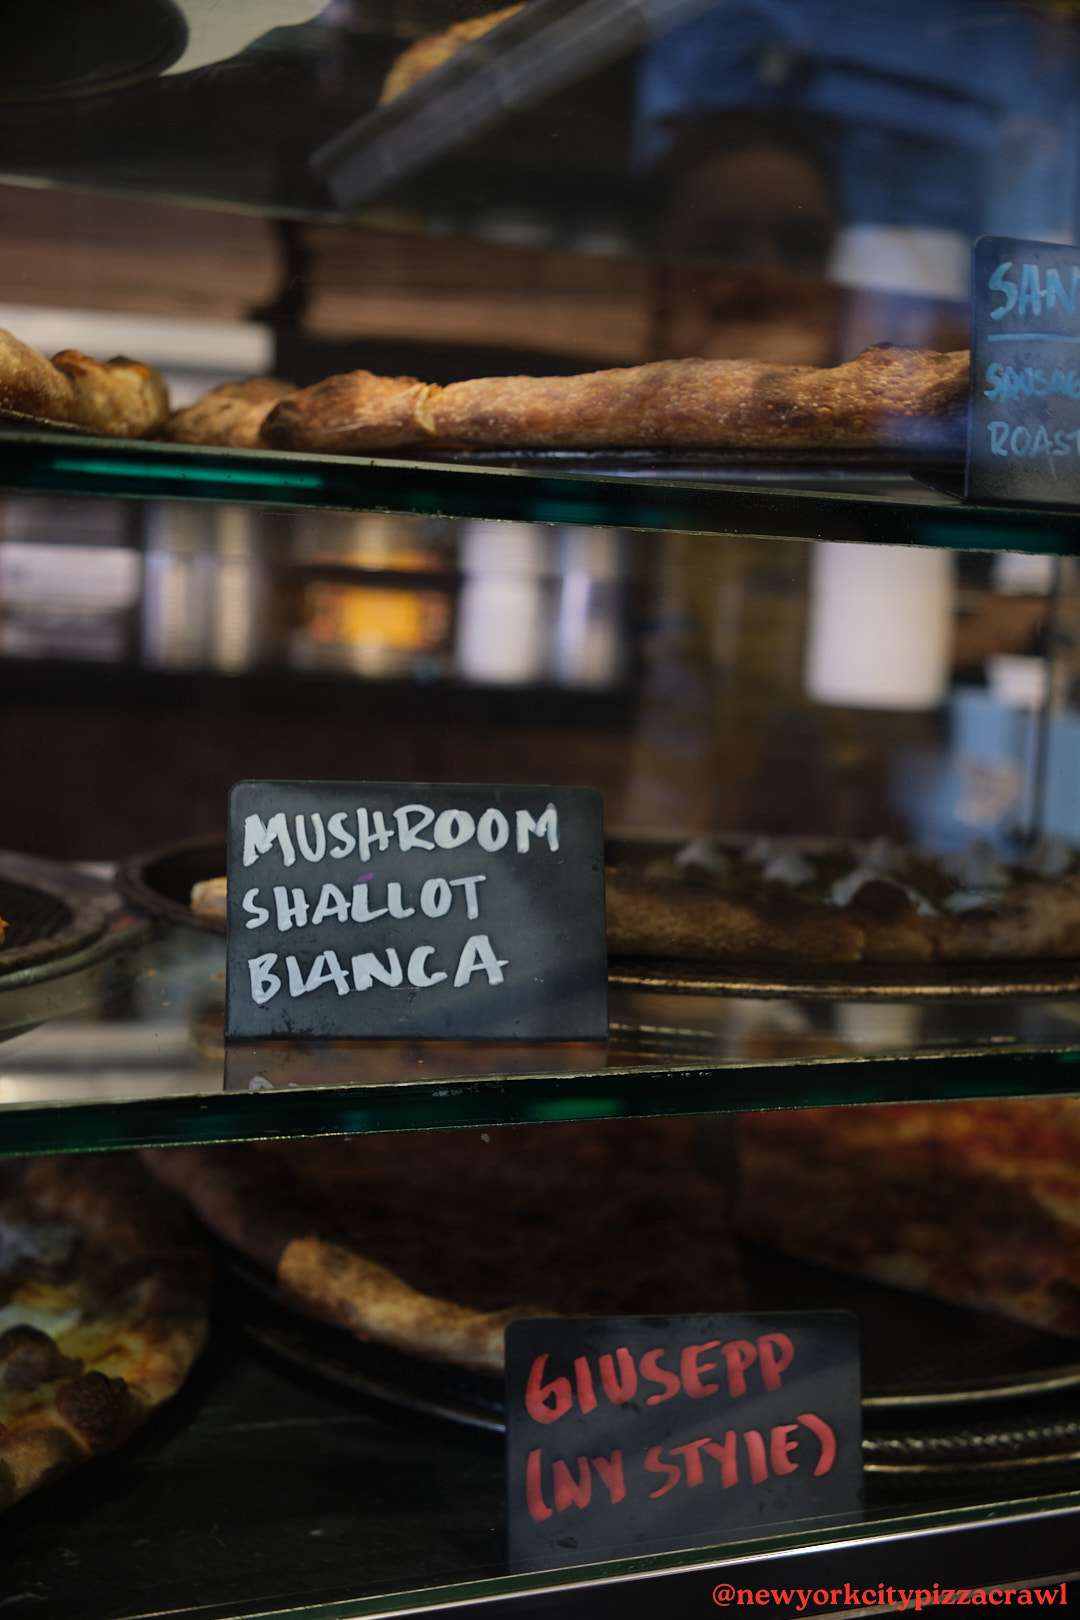 SAN
SAUSAG
ROAST
MUSHROOM
SHALLOT
BIANCA
GIUSEPP
(NY STYLE)
@newyorkcitypizzacrawl